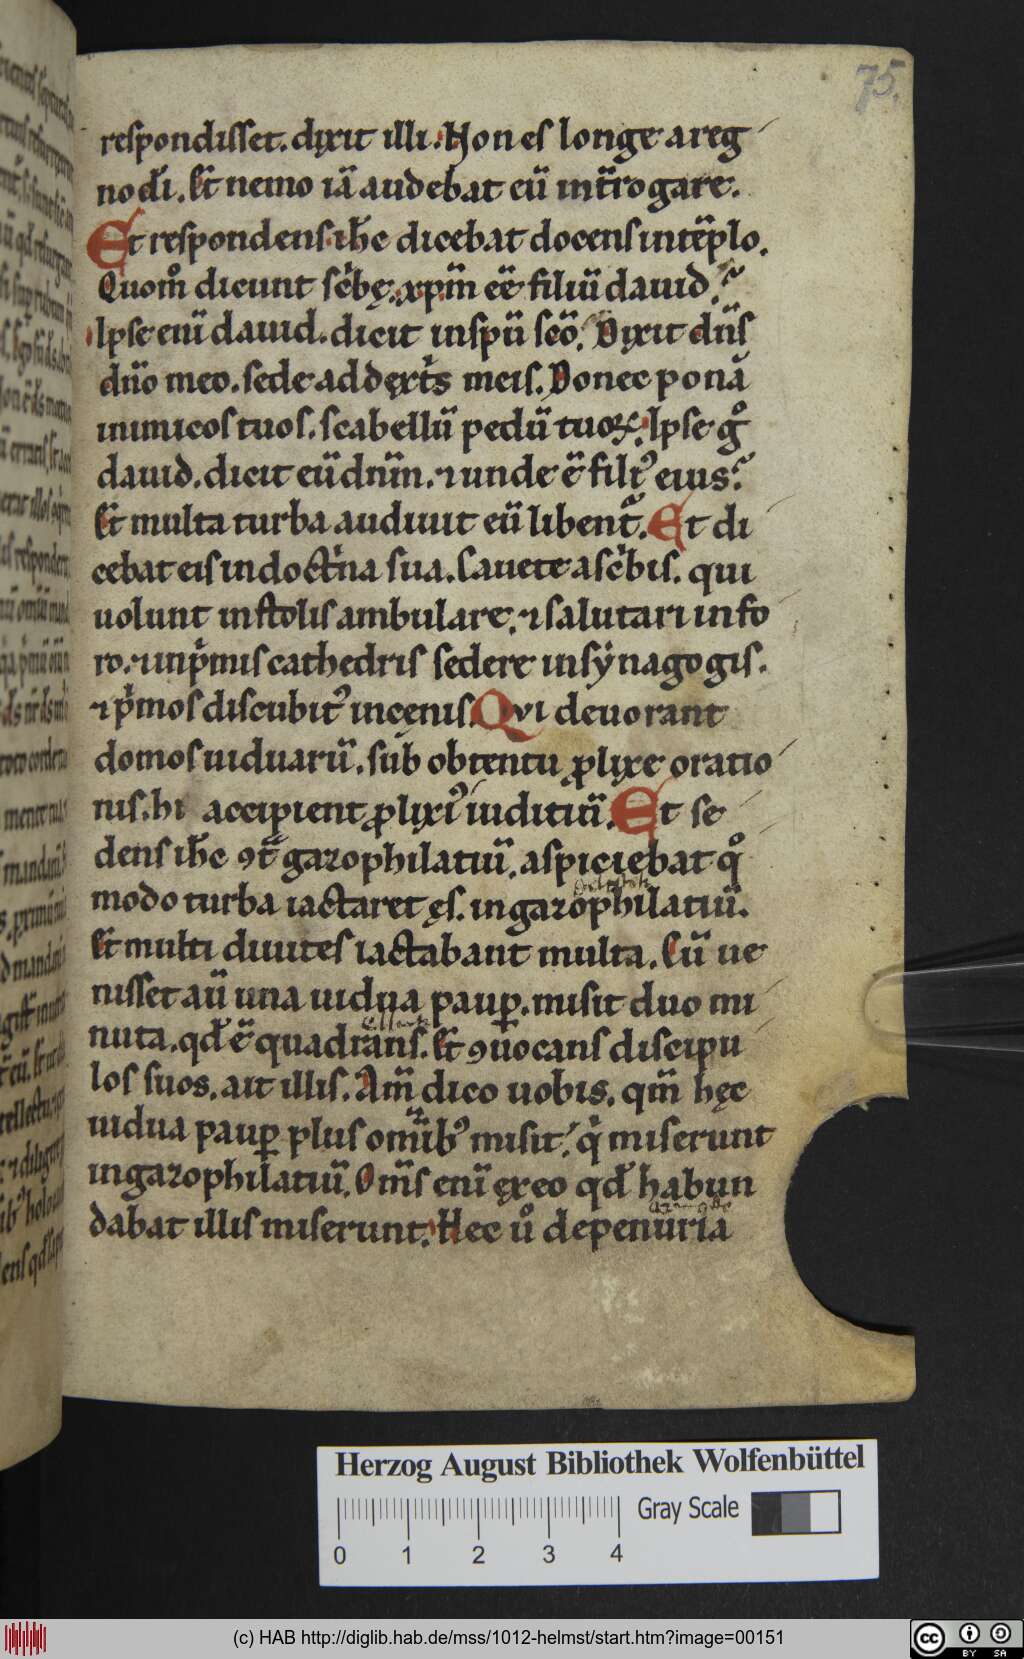 75.
respondisset. dixit illi. Non es longe a reg
no dī. Et̄ nemo iā audebat eū int̄rogare.
Et respondens ih̄c dicebat docens in tēplo.
Quom̊ dicunt sc̄bę. xp̄m ēē filiū dauid?
Ipse eni̅ dauid. dicit in sp̄u sc̄o. Dixit dn̄s
dn̄o meo. sede ad dext̄s meis. Donec ponā
inimicos tuos. scabellū pedū tuoꝝ. Ipse g̊
dauid. dicit eū dn̄m. ⁊ unde ē̄ fili᷒ eius?
Et̄ multa turba audiuit eū libent̄. Et di
cebat eis in doct̄na sua. Cauete a sc̄bis. qui
uolunt in stolis ambulare. ⁊ salutari in fo
ro. ⁊ in p̄mis cathedris sedere in synagogis.
⁊ p̄mos discubit᷒ in cęnis. Qvi deuorant
domos uiduarū. sub obtentu ꝓlixe oratio
nis. hi accipient ꝓlixi᷒ iuditiū. Et se
dens ih̄c ꝯt̄ gazophilatiū. aspiciebat q̊
modo turba iactaret ęs. in gazophilatiū.
Et̄ multi diuites iactabant multa. Cū ue
nisset aū una uidua paup̲. misit duo mi
nuta. qd̄ ē̄ quadrans. Et̄ ꝯuocans discipu
los suos. ait illis. Am̄ dico uobis. qm̄ hęc
uidua paup̲ plus om̄ib᷒ misit. q̄ miserunt
in gazophilatiū. Om̄s eni̅ ęx eo qd̄ habun
dabat illis miserunt. Hec ů de penuria
Herzog August Bibliothek Wolfenbüttel
Gray Scale
0 1 2 3 4
(c) HAB http://diglib.hab.de/mss/1012-helmst/start.htm?image=00151
cc BY SA